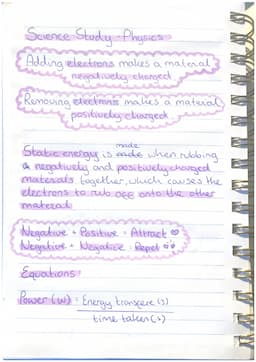 Science Study - Physics
Adding electrons makes a material
negatively charged
Removing electrons makes a material
positively charged
made
Static energy is made when rubbing
a negatively and positively charged
materials together, which causes the
electrons to rub off onto the other
material
Negative + Positive = Attract
Negative + Negative = Repel
Equations
Power (W) = Energy transfere (J)
time taken (s)